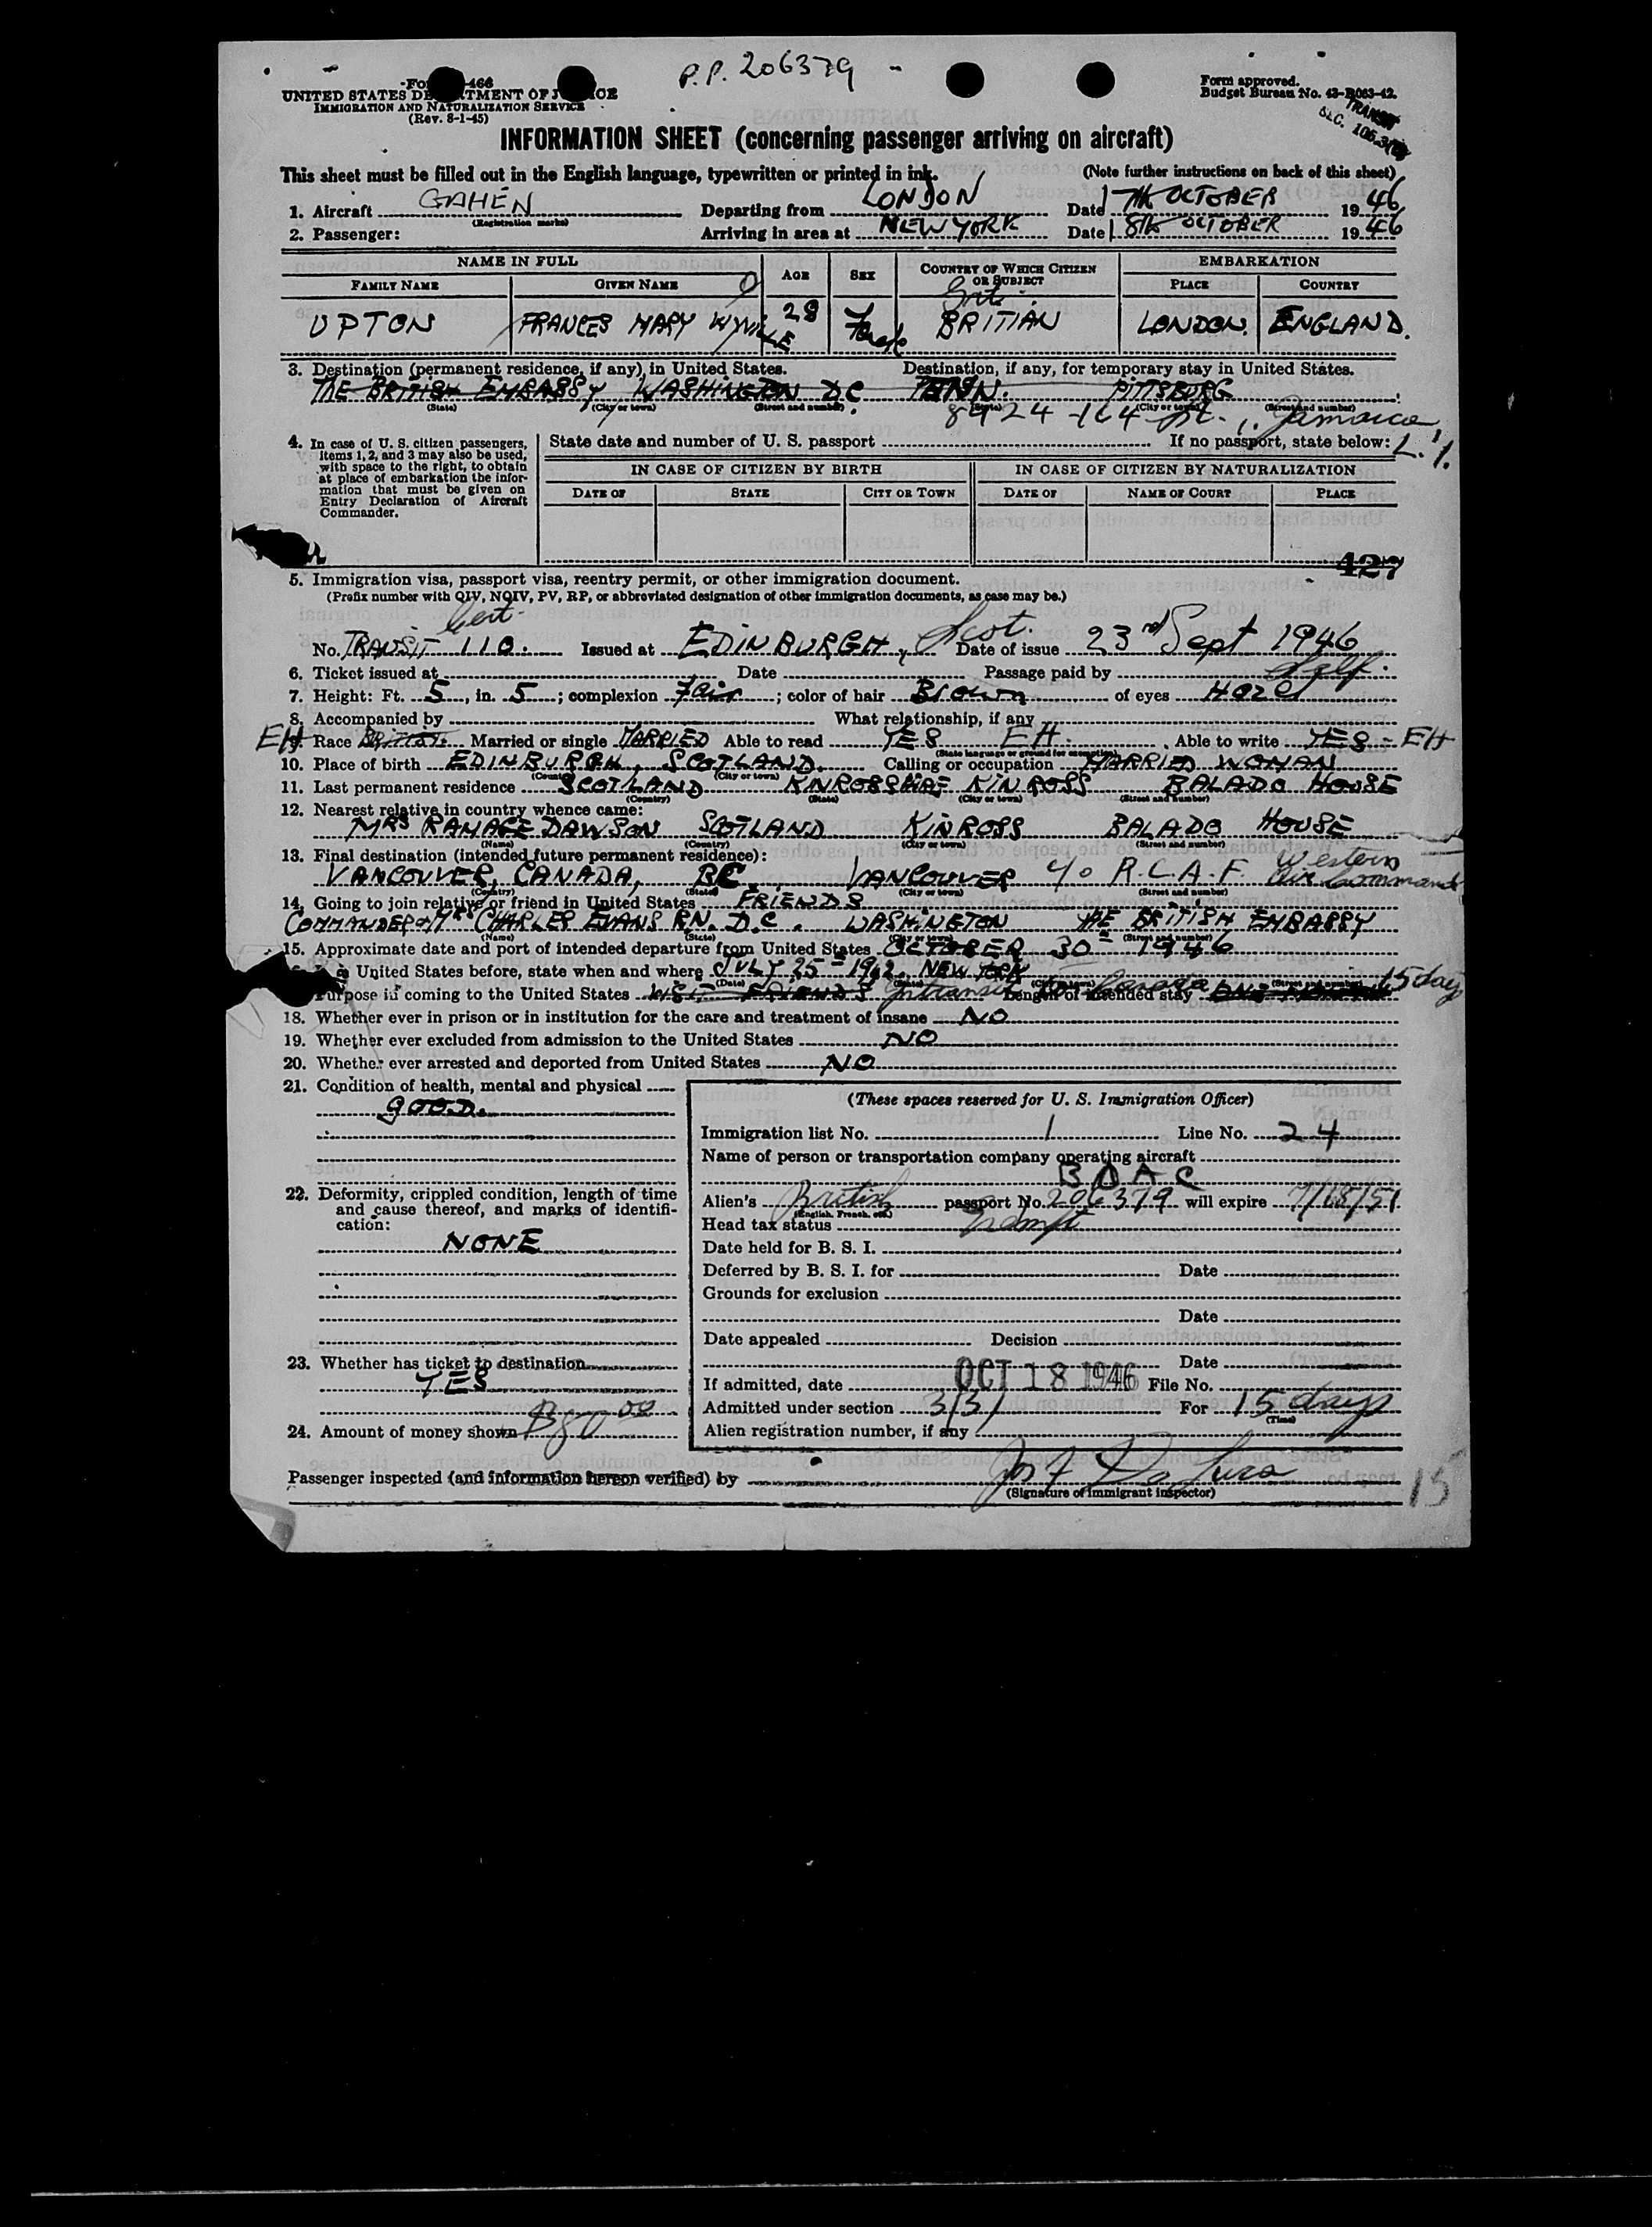 P.P. 206379 -
466
UNITED STATES DEPARTMENT OF JUSTICE
IMMIGRATION AND NATURALIZATION SERVICE
(Rev. 8-1-45)
Form approved.
Budget Bureau No. 43-R063-42.
TRANSIT
SEC. 105.3
INFORMATION SHEET (concerning passenger arriving on aircraft)
This sheet must be filled out in the English language, typewritten or printed in ink. (Note further instructions on back of this sheet)
1. Aircraft GAHEN Departing from LONDON Date 17TH OCTOBER 1946
(Registration marks)
2. Passenger: Arriving in area at NEW YORK Date 18TH OCTOBER 1946
NAME IN FULL AGE SEX COUNTRY OF WHICH CITIZEN OR SUBJECT EMBARKATION
FAMILY NAME GIVEN NAME PLACE COUNTRY
UPTON FRANCES MARY WYVILLE 28 Female BRITIAN LONDON. ENGLAND.
3. Destination (permanent residence, if any), in United States. Destination, if any, for temporary stay in United States.
THE BRITISH EMBASSY WASHINGTON D.C. PENN. PITTSBURG
(State) (City or town) (Street and number) (State) (City or town) (Street and number)
8424-164 St., Jamaica L.I.
4. In case of U. S. citizen passengers, items 1, 2, and 3 may also be used, with space to the right, to obtain at place of embarkation the information that must be given on Entry Declaration of Aircraft Commander.
State date and number of U. S. passport If no passport, state below:
IN CASE OF CITIZEN BY BIRTH IN CASE OF CITIZEN BY NATURALIZATION
DATE OF STATE CITY OR TOWN DATE OF NAME OF COURT PLACE
427
5. Immigration visa, passport visa, reentry permit, or other immigration document.
(Prefix number with QIV, NQIV, PV, RP, or abbreviated designation of other immigration documents, as case may be.)
Cert.
No. TRANSIT 110. Issued at EDINBURGH, Scot. Date of issue 23rd Sept 1946
6. Ticket issued at Date Passage paid by Self.
7. Height: Ft. 5, in. 5; complexion Fair; color of hair Brown of eyes Hazel
8. Accompanied by What relationship, if any
EH 9. Race BRITISH. Married or single MARRIED Able to read YES EH. Able to write YES - EH
(State language or ground for exemption)
10. Place of birth EDINBURGH, SCOTLAND. Calling or occupation MARRIED WOMAN
(Country) (City or town)
11. Last permanent residence SCOTLAND KINROSSHIRE KINROSS BALADO HOUSE
(Country) (State) (City or town) (Street and number)
12. Nearest relative in country whence came:
MRS RAMAGE DAWSON SCOTLAND KINROSS BALADO HOUSE
(Name) (Country) (City or town) (Street and number)
13. Final destination (intended future permanent residence):
VANCOUVER, CANADA, BC. VANCOUVER c/o R.C.A.F. Western Air Command
(Country) (State) (City or town) (Street and number)
14. Going to join relative or friend in United States FRIENDS
COMMANDER & MRS CHARLES EVANS R.N. D.C. WASHINGTON THE BRITISH EMBASSY
(Name) (State) (City or town) (Street and number)
15. Approximate date and port of intended departure from United States OCTOBER 30TH 1946
United States before, state when and where JULY 25TH 1942. NEW YORK
(Date) (State) (City or town) (Street and number)
Purpose in coming to the United States VISIT FRIENDS In transit to Canada Length of intended stay ONE MONTH 15 days
18. Whether ever in prison or in institution for the care and treatment of insane NO
19. Whether ever excluded from admission to the United States NO
20. Whether ever arrested and deported from United States NO
21. Condition of health, mental and physical
GOOD.
22. Deformity, crippled condition, length of time and cause thereof, and marks of identification:
NONE
23. Whether has ticket to destination
YES
24. Amount of money shown $80.00
(These spaces reserved for U. S. Immigration Officer)
Immigration list No. 1 Line No. 24
Name of person or transportation company operating aircraft
BOAC
Alien's British passport No. 206379 will expire 7/18/51
(English, French, etc.)
Head tax status Exempt
Date held for B. S. I.
Deferred by B. S. I. for Date
Grounds for exclusion
Date
Date appealed Decision
Date
If admitted, date OCT 18 1946 File No.
Admitted under section 3(3) For 15 days
(Time)
Alien registration number, if any
Passenger inspected (and information hereon verified) by
(Signature of immigrant inspector)
15